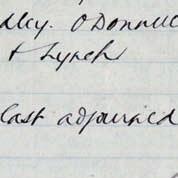 dley. O'Donnell
+ Lynch
last adjourned